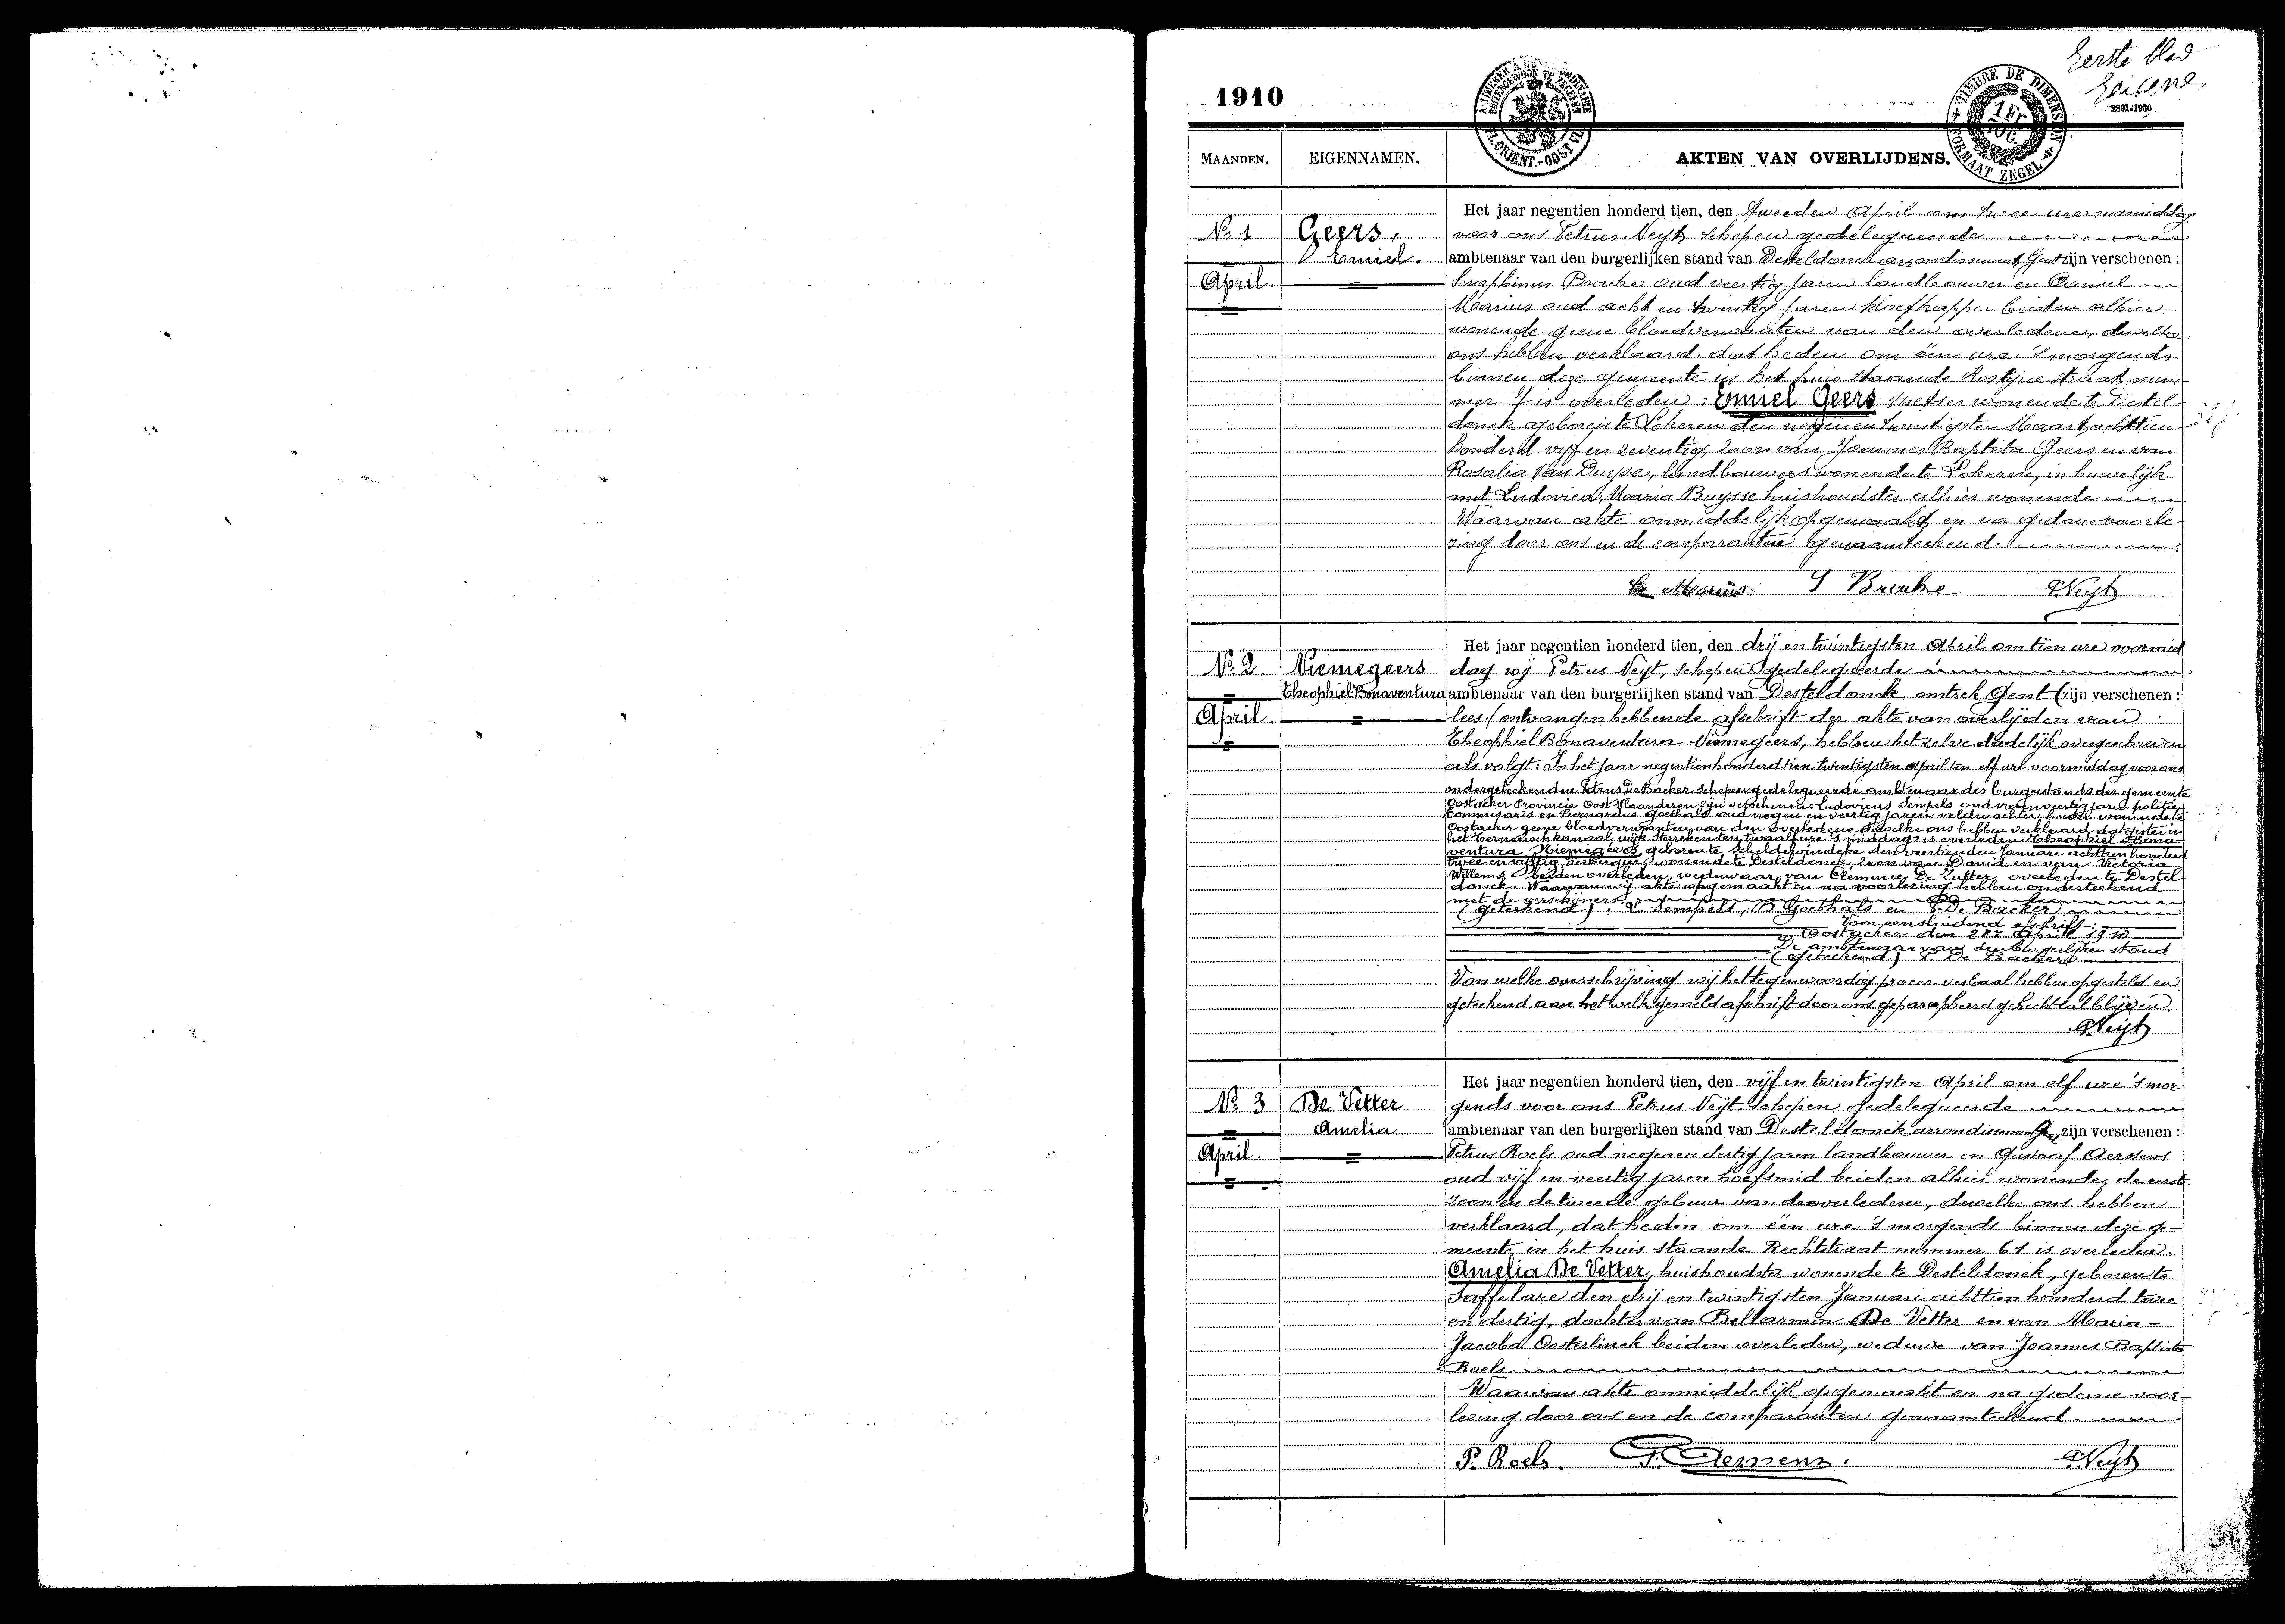 Eerste blad
1910
2891-1930
TIMBRE DE DIMENSION
FORMAAT ZEGEL
1 Fr
FL. ORIENT.-OOST VL.
MAANDEN. EIGENNAMEN. AKTEN VAN OVERLIJDENS.
Het jaar negentien honderd tien, den tweeden April om twee ure namiddag
No 1 Geers, voor ons Petrus Neyt, schepen gedelegueerde
Emiel. ambtenaar van den burgerlijken stand van Desteldonck arrondissement Gent zijn verschenen:
April Seraphinus Bracke oud veertig jaren landbouwer en Camiel
Marius oud acht en twintig jaren kloefkapper beiden alhier
wonende geene bloedverwanten van den overledene, dewelke
ons hebben verklaard dat heden om één ure 's morgends
binnen deze gemeente in het huis staande Rostijne straat num-
mer 7 is overleden: Emiel Geers wonende te Destel-
donck geboren te Lokeren den negenen twintigsten Maart achttien
honderd vijf en zeventig, zoon van Joannes Baptista Geers en van
Rosalia Van Duyse, landbouwers wonende te Lokeren, in huwelijk
met Ludovica Maria Buysse huishoudster alhier wonende
Waarvan akte onmiddelijk opgemaakt en na gedane voorle-
zing door ons en de comparanten genaamteekend.
C. Marius S Bracke P. Neyt
Het jaar negentien honderd tien, den drij en twintigsten April om tien ure voormid
No 2 Niemegeers dag wij Petrus Neyt, schepen gedelegueerde
Theophiel Bonaventura ambtenaar van den burgerlijken stand van Desteldonck omtrek Gent (zijn verschenen:
April lees) ontvangen hebbende afschrift der akte van overlijden van
Theophiel Bonaventura Niemegeers, hebben hetzelve dadelijk overgeschreven
als volgt: In het jaar negentienhonderdtien twintigsten April ten elf ure voormiddag voor ons
ondergeteekenden Petrus De Backer schepen gedelegueerde ambtenaar des burgerstands der gemeente
Oostacker Provincie Oost-Vlaanderen zijn verschenen: Ludovicus Sempels oud vijf en veertig jaren politie-
Commisaris en Bernardus Goethals oud negen en veertig jaren veldwachter beiden wonende te
Oostacker geene bloedverwanten van den overledene dewelke ons hebben verklaard dat gister in
het Terneusch kanaal wijk Sterreken ten twaalf ure 's middags is overleden Theophiel Bona-
ventura Niemegeers, geboren te Scheldewindeke den veertienden Januari achttien honderd
twee en vijftig, herbergier, wonende te Desteldonck, zoon van David en van Victoria
Willems beiden overleden, weduwaar van Clemence De Zutter overleden te Destel
donck. Waarvan wij akte opgemaakt en na voorlezing hebben onderteekend
met de verschijners
(Geteekend). L. Sempels, B Goethals en P. De Backer
Voor eensluidend afschrift:
Oostacker den 21en April 1910
De ambtenaar van den burgerlijken stand
(Geteekend) P De Backer
Van welke overschrijving wij het tegenwoordig proces-verbaal hebben opgesteld en
geteekend aan hetwelk gemeld afschrift door ons geparapheerd gehecht zal blijven.
P. Neyt
Het jaar negentien honderd tien, den vijf en twintigsten April om elf ure 's mor-
No 3 De Vetter gends voor ons Petrus Neyt, schepen gedelegueerde
Amelia ambtenaar van den burgerlijken stand van Desteldonck arrondissement Gent zijn verschenen:
April Petrus Roels oud negenen dertig jaren landbouwer en Gustaaf Aerssens
oud vijf en veertig jaren hoefsmid beiden alhier wonende, de eerste
zoon en de tweede gebuur van de overledene, dewelke ons hebben
verklaard, dat heden om één ure 's morgends binnen deze ge-
meente in het huis staande Rechtstraat nummer 61 is overleden.
Amelia De Vetter, huishoudster wonende te Desteldonck, geboren te
Saffelare den drij en twintigsten Januari achttien honderd twee
en dertig, dochter van Bellarmin De Vetter en van Maria-
Jacoba Oosterlinck beiden overleden, weduwe van Joannes Baptiste
Roels.
Waarvan akte onmiddelijk opgemaakt en na gedane voor-
lezing door ons en de comparanten genaamteekend.
P. Roels. P. Neyt